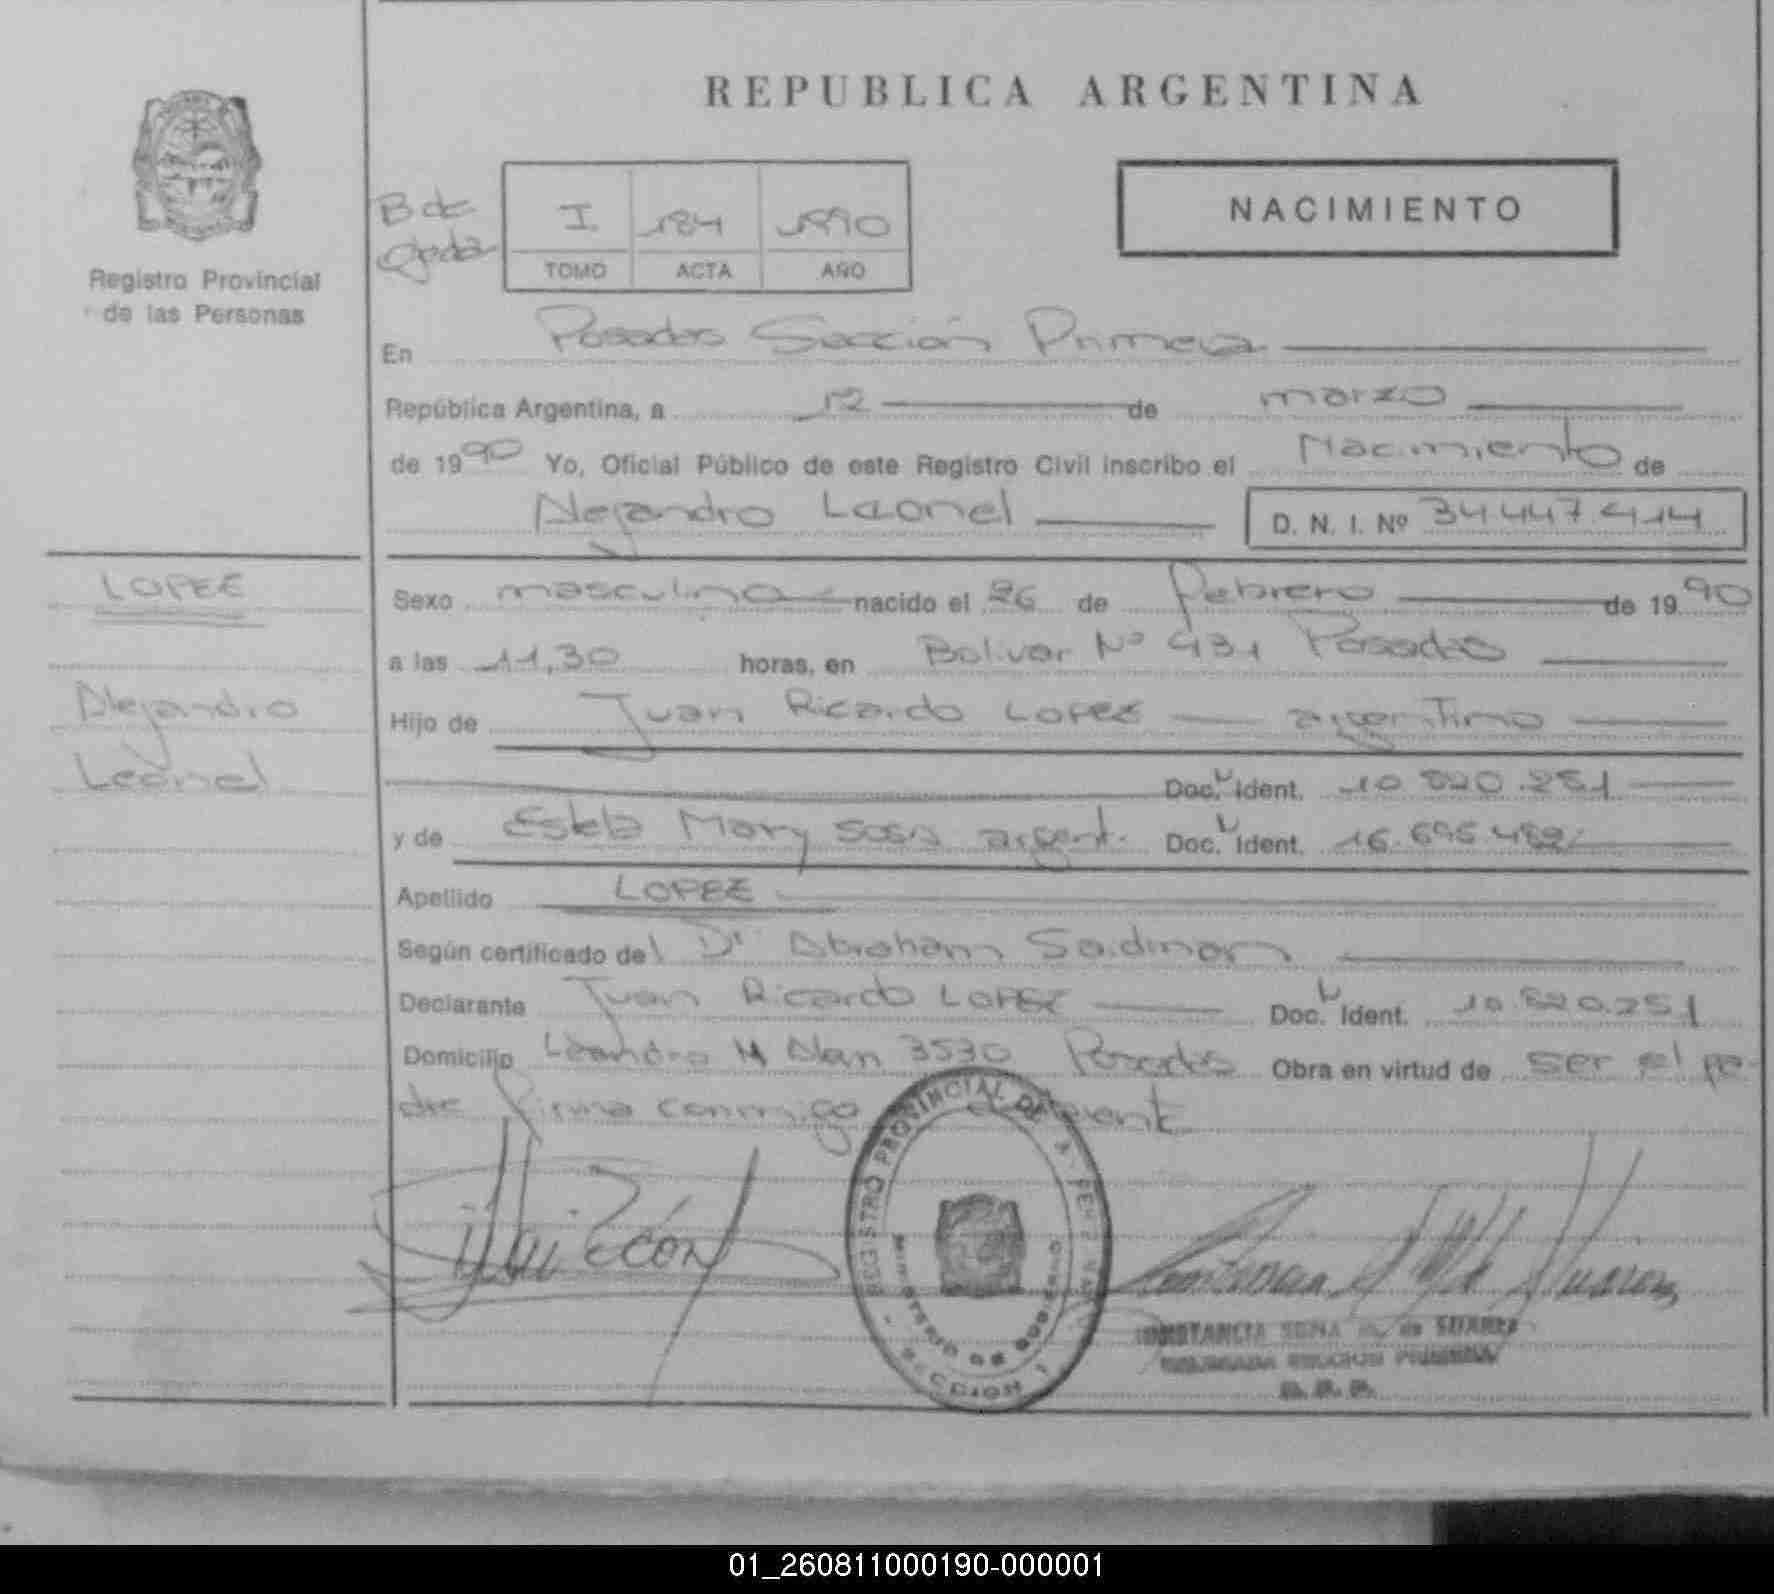 REPUBLICA ARGENTINA
Registro Provincial
de las Personas
I 184 1990
TOMO ACTA AÑO
NACIMIENTO
En Posadas Sección Primera
República Argentina, a 12 de marzo
de 1990 Yo, Oficial Público de este Registro Civil inscribo el Nacimiento de
Alejandro Leonel D. N. I. Nº 34447414
LOPEZ
Alejandro
Leonel
Sexo masculino nacido el 26 de febrero de 1990
a las 11,30 horas, en Bolivar Nº 431 Posadas
Hijo de Juan Ricardo LOPEZ argentino
Doc. Ident. 10.820.251
y de Estela Mary Sosa argent. Doc. Ident. 16.695.482
Apellido LOPEZ
Según certificado del Dr Abraham Saidman
Declarante Juan Ricardo LOPEZ Doc. Ident. 10.820.251
Domicilio Leandro N Alan 3530 Posadas Obra en virtud de ser el pa-
dre firma conmigo
REGISTRO PROVINCIAL DE
MINISTERIO DE GOBIERNO
SECCION 1
CONSTANCIA de SUAREZ
DELEGADA SECCION PRIMERA
01_260811000190-000001